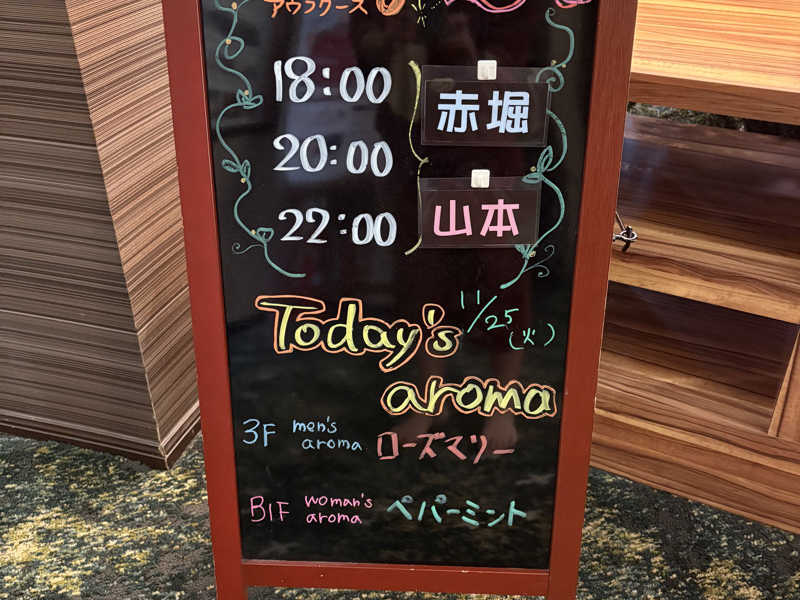 アウフグース
18:00
赤堀
20:00
22:00
山本
Today's
11/25
(火)
aroma
3F men's
aroma ローズマリー
B1F woman's
aroma ペパーミント